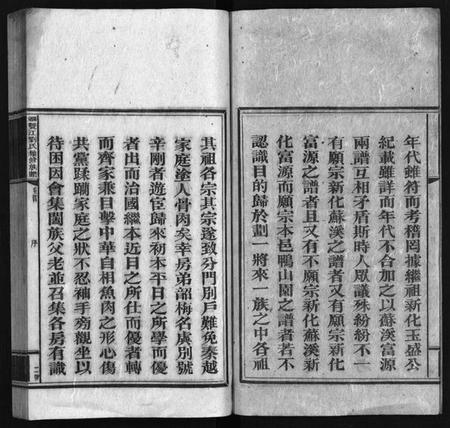 年代雖符而考稽罔據繼祖新化玉盛公
紀載雖詳而年代不合加之以蘇溪富源
兩譜互相矛盾斯時人眾議殊紛紛不一
有願宗新化蘇溪之譜者又有願宗新化
富源之譜者且又有不願宗新化蘇溪新
化富源而願宗本邑鴨山園之譜者若不
認識目的歸於劃一將來一族之中各祖
其祖各宗其宗遂致分門別戶難免秦越
家庭塗人骨肉矣幸房弟韶梅名虞別號
辛剛者遊宦歸來初本平日之所學而優
者出而治國繼本近日之所仕而優者轉
而齊家乘目擊中華自相魚肉之形心傷
共黨蹂躪家庭之狀不忍袖手旁觀坐以
待困因會集闔族父老並召集各房有識
序